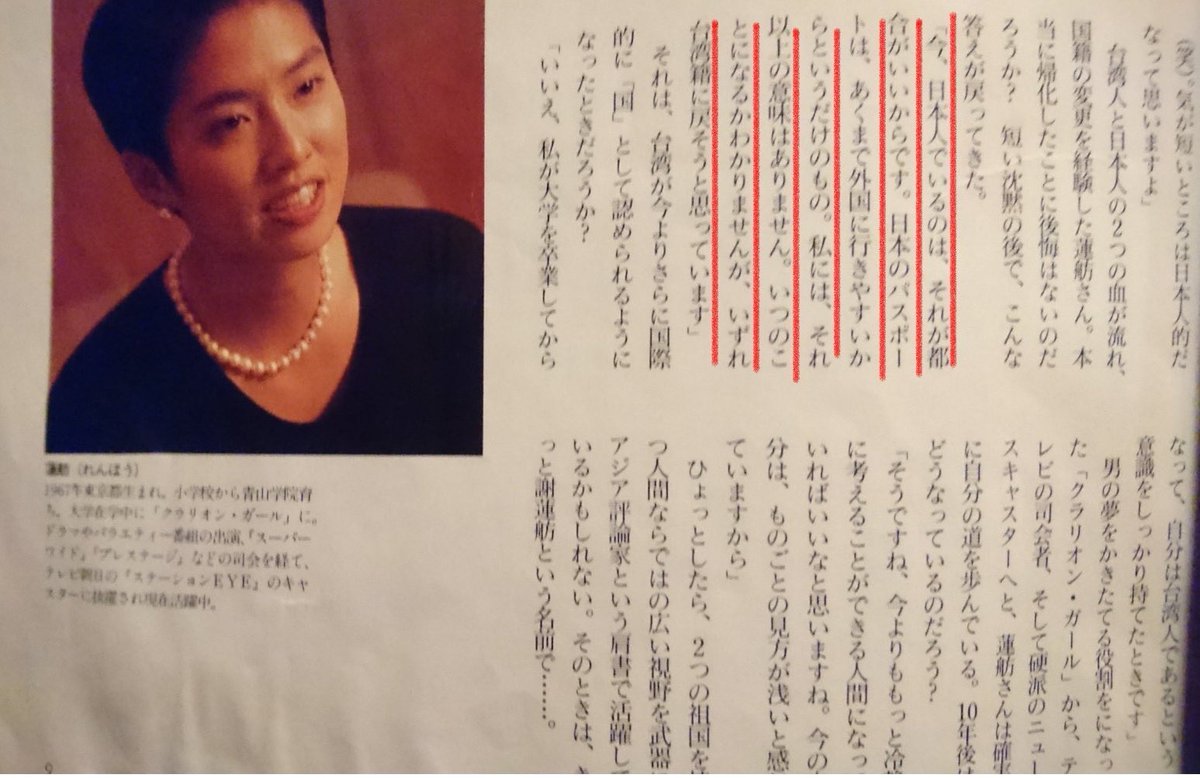 (笑)。気が短いところは日本人的だ
なって思いますよ」
台湾人と日本人の2つの血が流れ、
国籍の変更を経験した蓮舫さん。本
当に帰化したことに後悔はないのだ
ろうか? 短い沈黙の後で、こんな
答えが戻ってきた。
「今、日本人でいるのは、それが都
合がいいからです。日本のパスポー
トは、あくまで外国に行きやすいか
らというだけのもの。私には、それ
以上の意味はありません。いつのこ
とになるかわかりませんが、いずれ
台湾籍に戻そうと思っています」
それは、台湾が今よりさらに国際
的に「国」として認められるように
なったときだろうか?
「いいえ、私が大学を卒業してから
なって、自分は台湾人であるという
意識をしっかり持てたときです」
男の夢をかきたてる役割をになっ
た「クラリオン・ガール」から、テ
レビの司会者、そして硬派のニュー
スキャスターへと、蓮舫さんは確実
に自分の道を歩んでいる。10年後は
どうなっているのだろう?
「そうですね、今よりももっと冷静
に考えることができる人間になって
いればいいなと思いますね。今の
分は、ものごとの見方が浅いと感
ていますから」
ひょっとしたら、2つの祖国を
つ人間ならではの広い視野を武器
アジア評論家という肩書で活躍して
いるかもしれない。そのときは、
っと謝蓮舫という名前で……。
蓮舫(れんほう)
1967年東京都生まれ。小学校から青山学院育
ち。大学在学中に「クラリオン・ガール」に。
ドラマやバラエティー番組の出演、「スーパー
ワイド」「プレステージ」などの司会を経て、
テレビ朝日の「ステーションEYE」のキャ
スターに抜擢され現在活躍中。